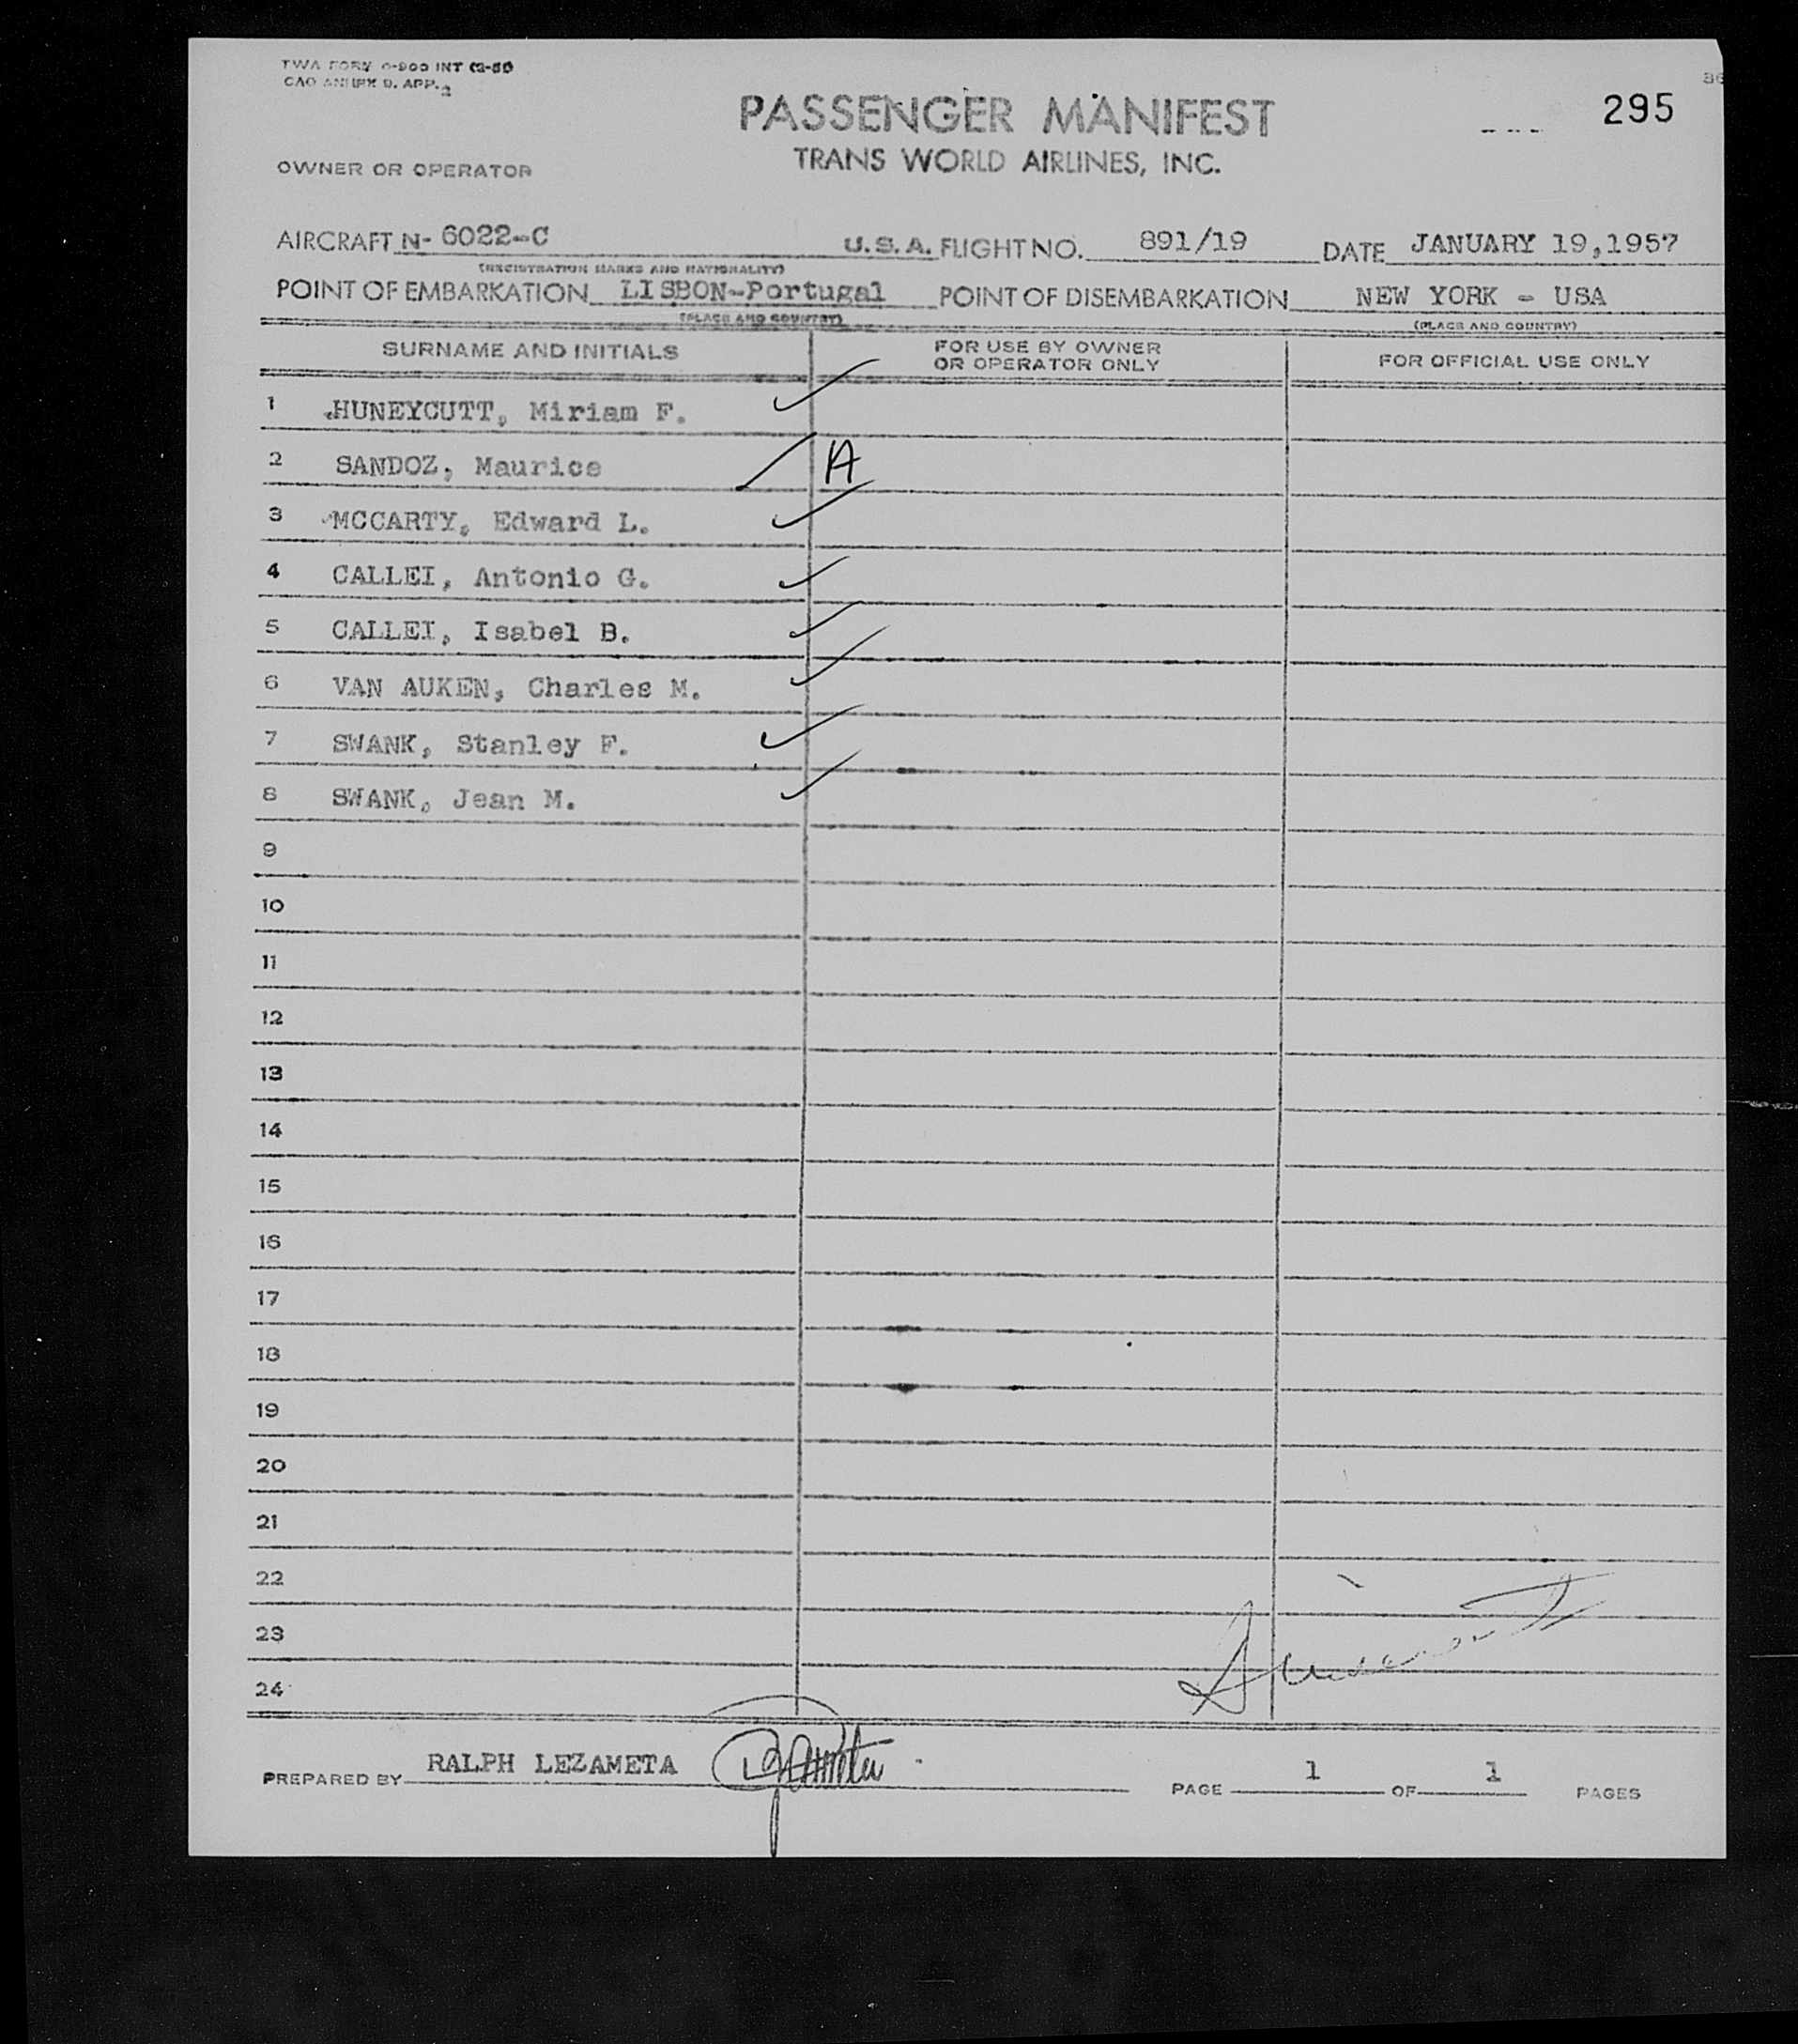 TWA FORM O-900 INT
CAO ANNEX 9. APP. 2
PASSENGER MANIFEST
295
TRANS WORLD AIRLINES, INC.
OWNER OR OPERATOR
AIRCRAFT N- 6022-C U.S.A. FLIGHT NO. 891/19 DATE JANUARY 19,1957
(REGISTRATION MARKS AND NATIONALITY)
POINT OF EMBARKATION LISBON-Portugal POINT OF DISEMBARKATION NEW YORK - USA
(PLACE AND COUNTRY) (PLACE AND COUNTRY)
SURNAME AND INITIALS FOR USE BY OWNER OR OPERATOR ONLY FOR OFFICIAL USE ONLY
1 HUNEYCUTT, Miriam F.
2 SANDOZ, Maurice A
3 MCCARTY, Edward L.
4 CALLEI, Antonio G.
5 CALLEI, Isabel B.
6 VAN AUKEN, Charles M.
7 SWANK, Stanley F.
8 SWANK, Jean M.
9
10
11
12
13
14
15
16
17
18
19
20
21
22
23
24
PREPARED BY RALPH LEZAMETA PAGE 1 OF 1 PAGES